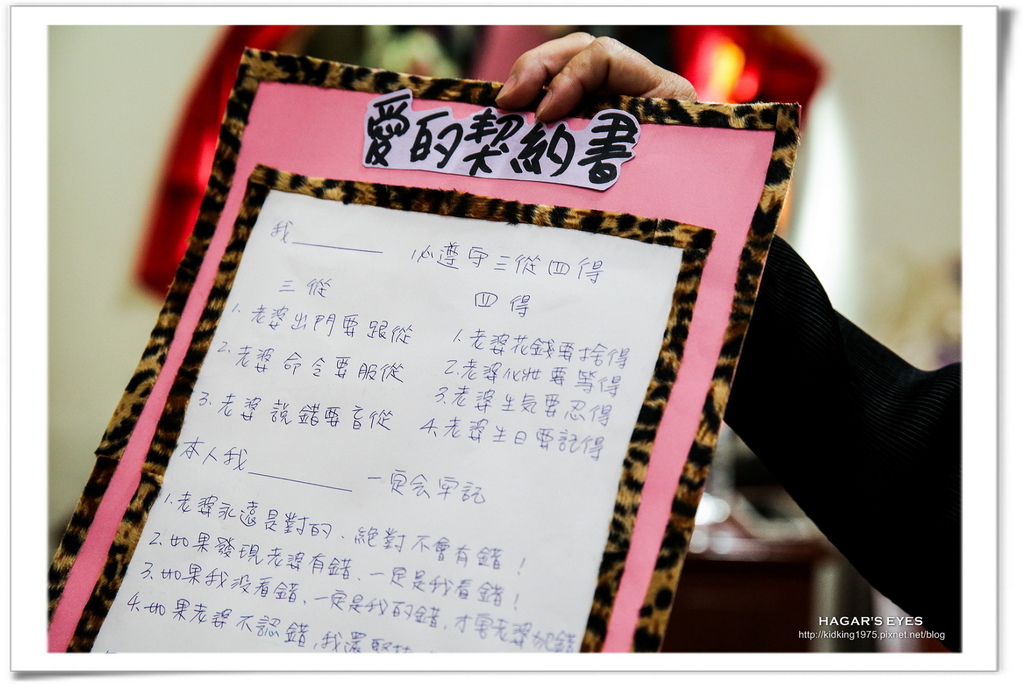 愛的契約書
我______ 必遵守三從四得
三從
1. 老婆出門要跟從
2. 老婆命令要服從
3. 老婆說錯要盲從
四得
1. 老婆花錢要捨得
2. 老婆化妝要等得
3. 老婆生気要忍得
4. 老婆生日要記得
本人我______ 一定会牢記
1. 老婆永遠是對的．絕對不會有錯！
2. 如果發現老婆有錯．一定是我看錯！
3. 如果我沒看錯．一定是我的錯．才害老婆犯錯
4. 如果老婆不認錯，我還堅持
HAGAR'S EYES
http://kidking1975.pixnet.net/blog